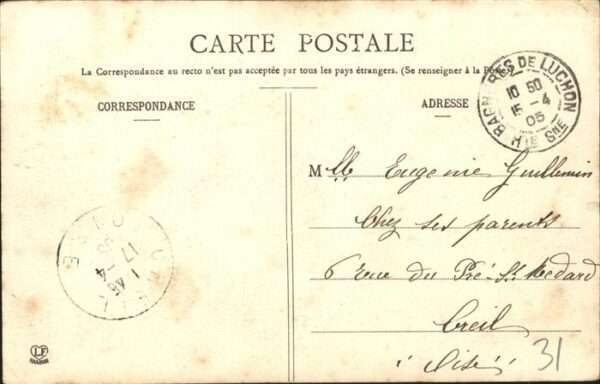 CARTE POSTALE
La Correspondance au recto n'est pas acceptée par tous les pays étrangers. (Se renseigner à la Poste)
CORRESPONDANCE
ADRESSE
BAGNÈRES DE LUCHON
10 50
15 - 4
05
HTE GNE
Mlle Eugenie Guillemin
Chez ses parents
6 rue du Pré-St Médard
Creil
(Oise)
31
17 - 4
LF